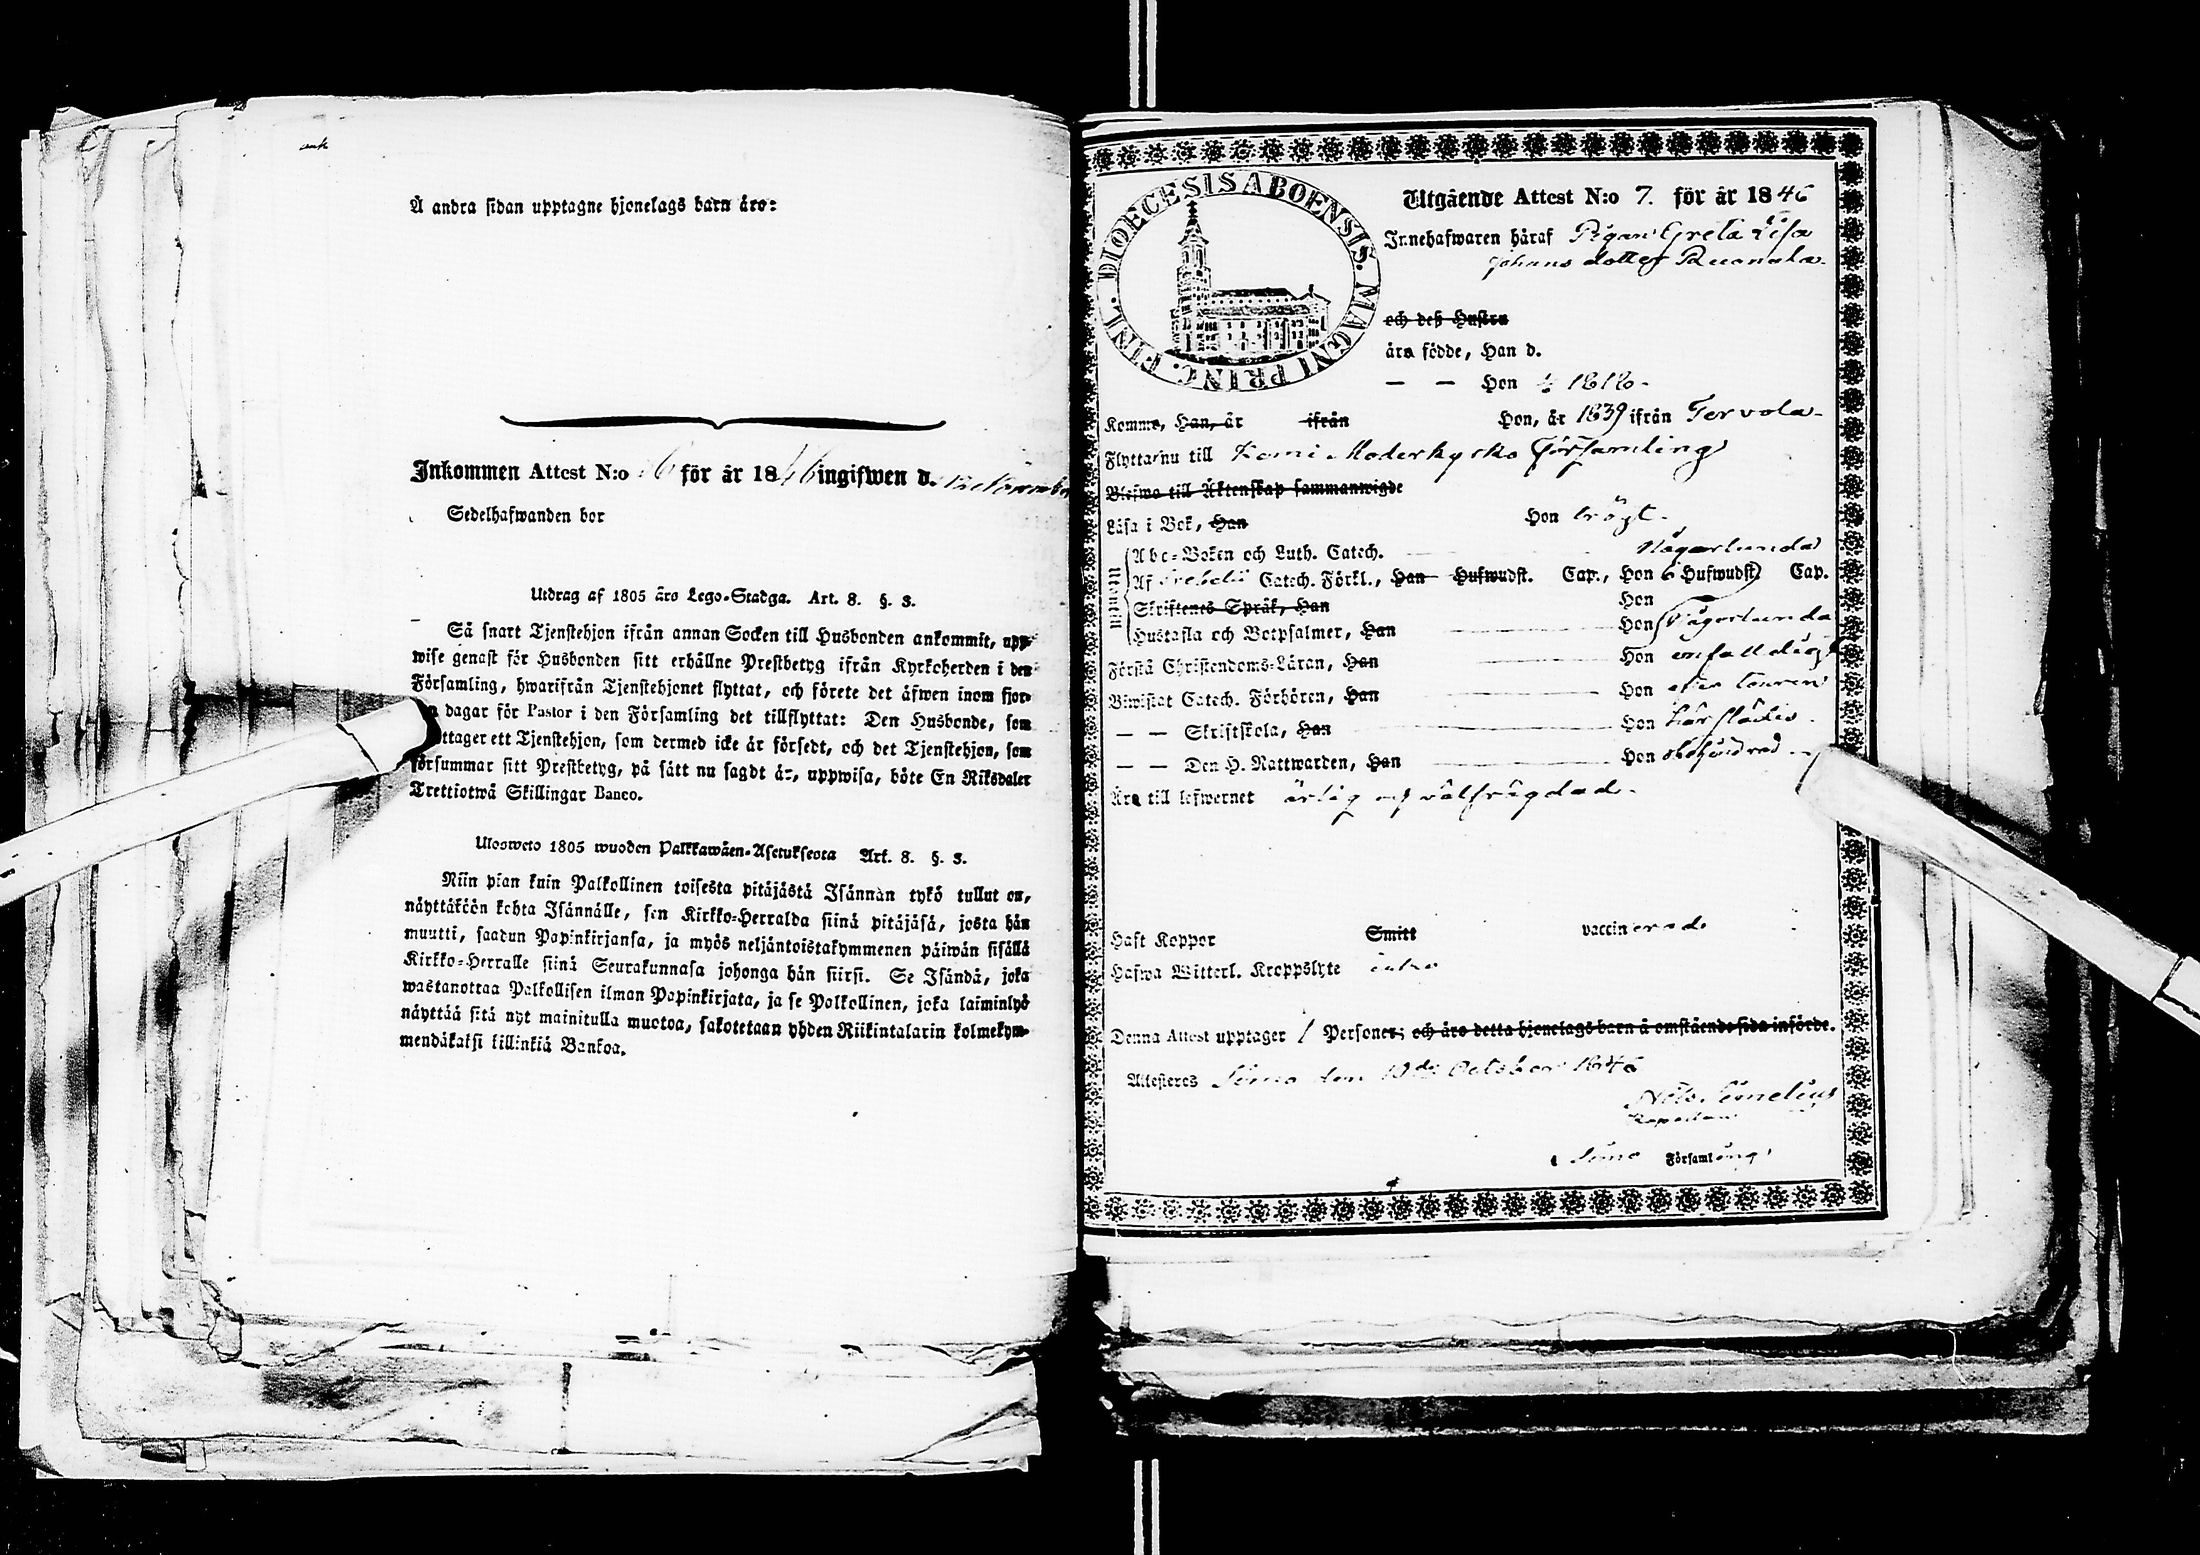 Å andra sidan upptagne hjonelags barn äro:
Inkommen Attest N:o 6 för år 1846 ingifwen d.
Sedelhafwanden bor
Utdrag af 1805 års Lego-Stadga. Art. 8. §. 3.
Så snart Tjenstehjon ifrån annan Socken till Husbonden ankommit, upp-
wise genast för Husbonden sitt erhållne Prestbetyg ifrån Kyrkoherden i den
Församling, hwarifrån Tjenstehjonet flyttat, och förete det äfwen inom fjor-
dagar för Pastor i den Församling det tillflyttat: Den Husbonde, som
ttager ett Tjenstehjon, som dermed icke är försedt, och det Tjenstehjon, som
försummar sitt Prestbetyg, på sätt nu sagdt är, uppwisa, böte En Riksdaler
Trettiotwå Skillingar Banco.
Ulosweto 1805 wuoden Palkkawäen-Asetuksesta Art. 8. §. 3.
Niin pian kuin Palkollinen toisesta pitäjästä Isännän tykö tullut on,
näyttäköön kohta Isännälle, sen Kirkko-Herralda siinä pitäjäsä, josta hän
muutti, saadun Papinkirjansa, ja myös neljäntoistakymmenen päiwän sisällä
Kirkko-Herralle siinä Seurakunnasa johonga hän siirsi. Se Isändä, joka
wastanottaa Palkollisen ilman Papinkirjata, ja se Palkollinen, joka laiminlyö
näyttää sitä nyt mainitulla muotoa, sakotetaan yhden Riikintalarin kolmekym-
mendäkaksi killinkiä Bankoa.
DIOECESIS ABOENSIS. MAGNI PRINC. FINL.
Utgående Attest N:o 7. för år 1846
Innehafwaren häraf Pigan Greta Lisa
Johans dotter Ruonala
och deß Hustru
äro födde, Han d.
— — Hon 1818.
Komme, Han, år ifrån Hon, år 1839 ifrån Tervola
Flytta nu till Kemi Moderkyrko Församling
Blefwo till Äktenskap sammanwigde
Läsa i Bok, Han Hon trögt.
Utontill
Abc-Boken och Luth. Catech. Någorlunda
Af Svebelii Catech. Förkl., Han Hufwudst. Cap., Hon 6 Hufwudst. Cap.
Skriftenes Språk, Han Hon
Hustafla och Botpsalmer, Han Hon Någorlunda
Förstå Christendoms-Läran, Han Hon enfalldigt
Biwistat Catech. Förhören, Han Hon
— — Skriftskola, Han Hon härstädes.
— — Den H. Nattwarden, Han Hon obehindrad
Äro till lefwernet ärlig och välfrägdad.
Haft Koppor Smitt vaccinerad.
Hafwa Witterl. Kroppslyte intet
Denna Attest upptager 1 Personer; och äro detta hjonelags barn å omstående sida införde.
Attesteras Simo den 19de October 1846
Nils Simelius
Kapellan
i Simo Församling